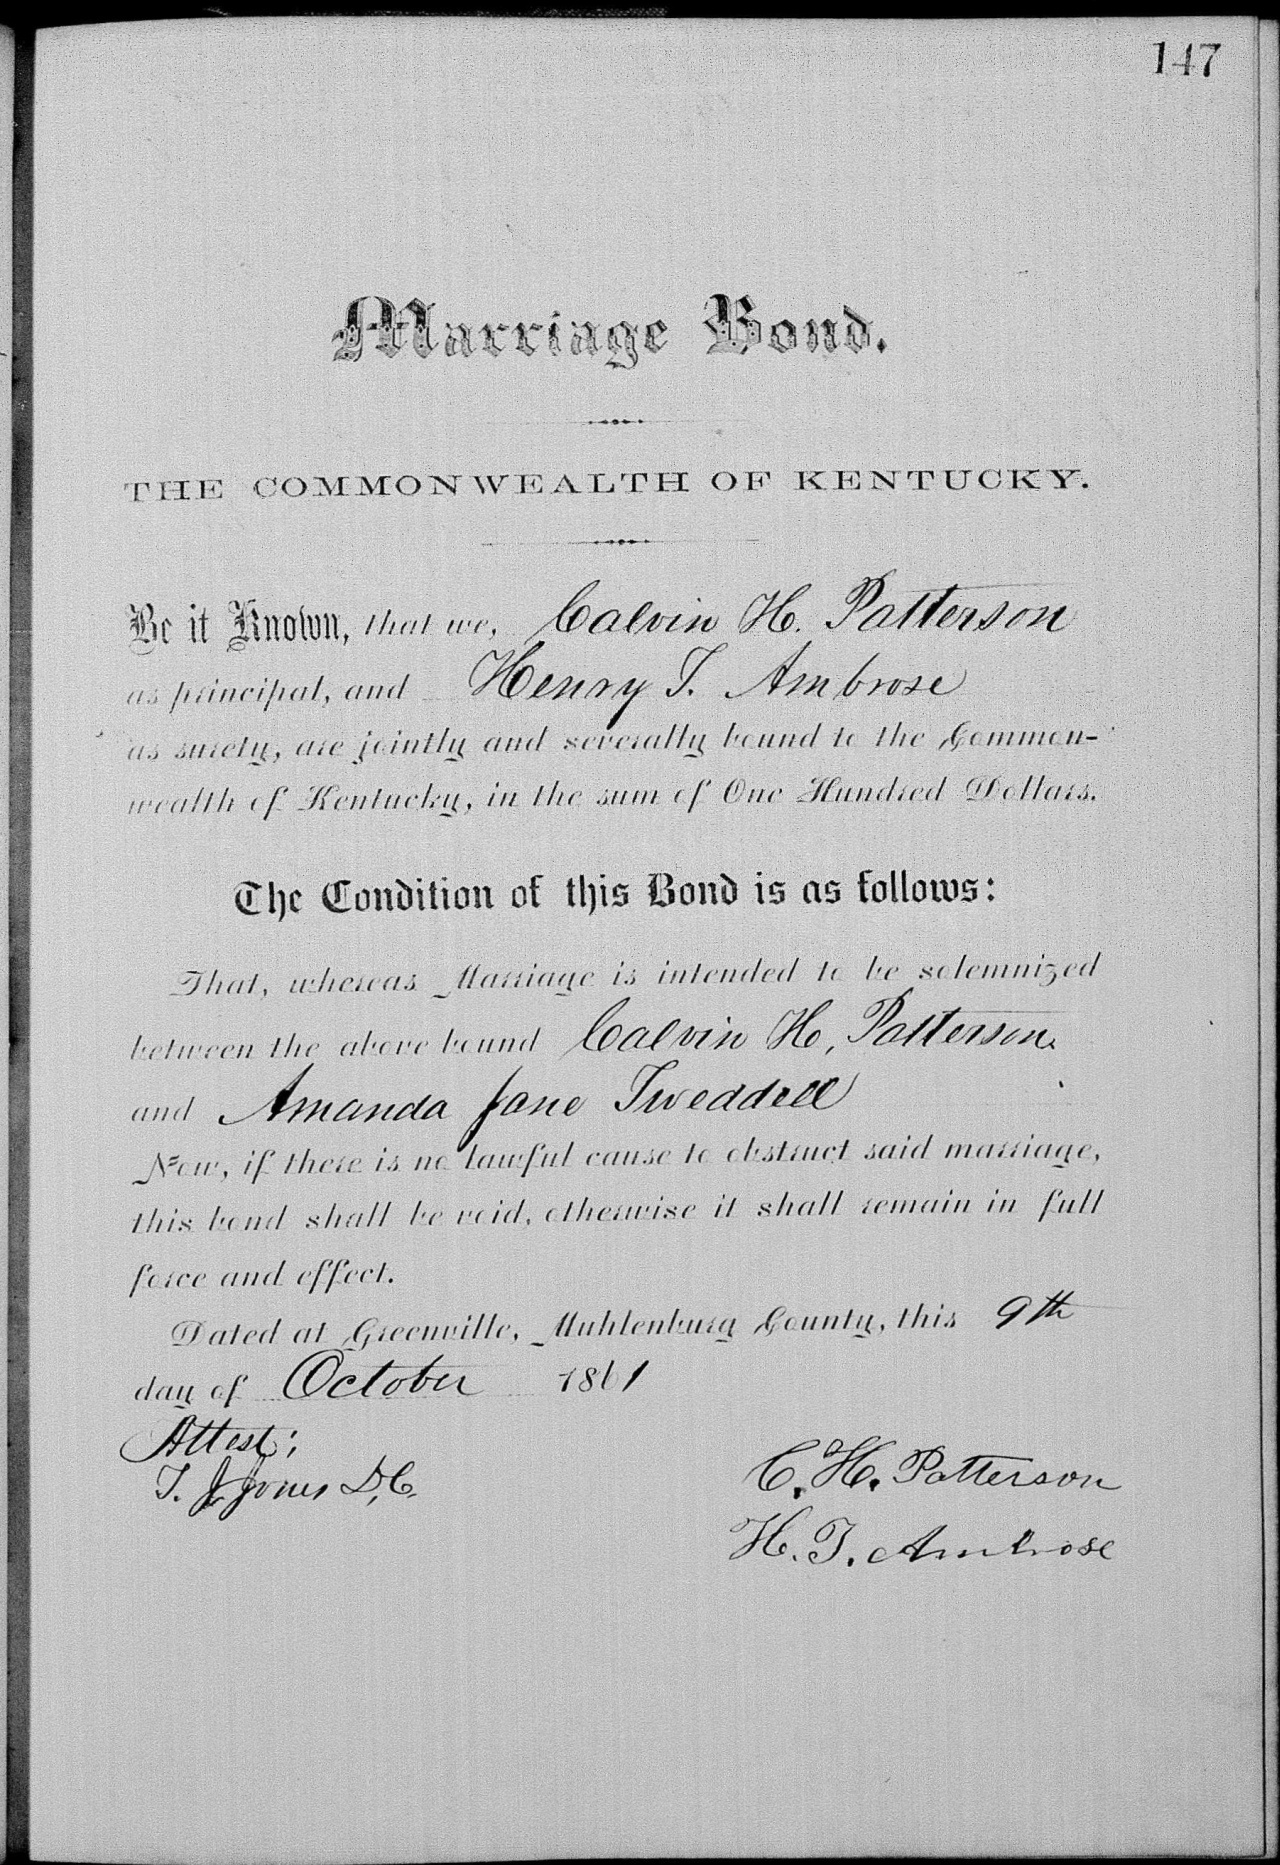 147
Marriage Bond.
THE COMMONWEALTH OF KENTUCKY.
Be it Known, that we, Calvin H. Patterson
as principal, and Henry T. Ambrose
as surety, are jointly and severally bound to the Common-
wealth of Kentucky, in the sum of One Hundred Dollars.
The Condition of this Bond is as follows:
That, whereas Marriage is intended to be solemnized
between the above bound Calvin H. Patterson
and Amanda Jane Tweddell
Now, if there is no lawful cause to obstruct said marriage,
this bond shall be void, otherwise it shall remain in full
force and effect.
Dated at Greenville, Muhlenburg County, this 9th
day of October 1861
Attest:
T. J Jones D.C.
C. H. Patterson
H. T. Ambrose